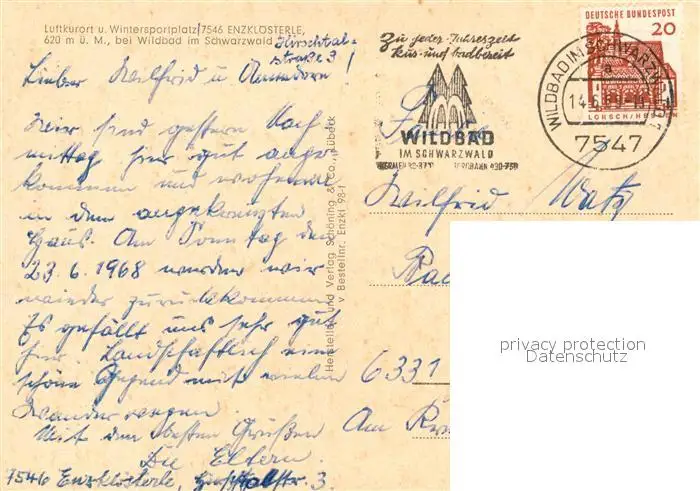 Luftkurort u. Wintersportplatz/7546 ENZKLÖSTERLE,
620 m ü. M., bei Wildbad im Schwarzwald
Hirschtal-
straße 3
Lieber Wilfrid u. !
Wir sind gestern Nach
mittag hier gut ange
kommen und wohnen
in dem angekreuzten
Haus. Am Sonntag den
23.6.1968 werden wir
wieder zurückkommen
Es gefällt uns sehr gut
hier. Landschaftlich eine
schöne Gegend mit vielen
Wanderwegen
Mit den besten Grüßen
Die Eltern.
7546 Enzklösterle, Hirschtalstr. 3.
Hersteller und Verlag Schöning & Co., Lübeck
v Bestellnr. Enzkl 98-f
Zu jeder Jahreszeit
kur- und badbereit
WILDBAD
IM SCHWARZWALD
THERMEN 32-37° BERGBAHN 430-750
DEUTSCHE BUNDESPOST
20
LORSCH/HESSEN
WILDBAD IM SCHWARZWALD 1
a
14.6.
7547
Wilfrid
6331
Am
privacy protection
Datenschutz